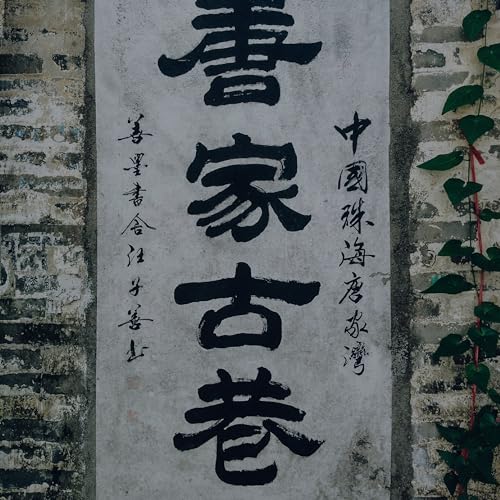 中國珠海唐家灣
家古巷
善墨書舍汪子善书